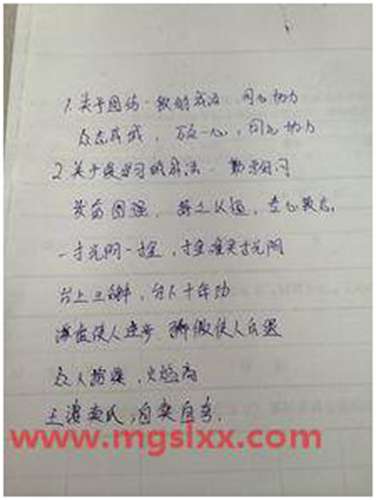 1.关于团结一致的成语：同心协力
众志成城，万众一心，同心协力
2.关于爱学习的成语：勤学好问
发奋图强，持之以恒，专心致志
一寸光阴一寸金，寸金难买寸光阴
台上三分钟，台下十年功
虚心使人进步 骄傲使人落后
众人拾柴，火焰高
王婆卖瓜，自卖自夸.
www.mgslxx.com